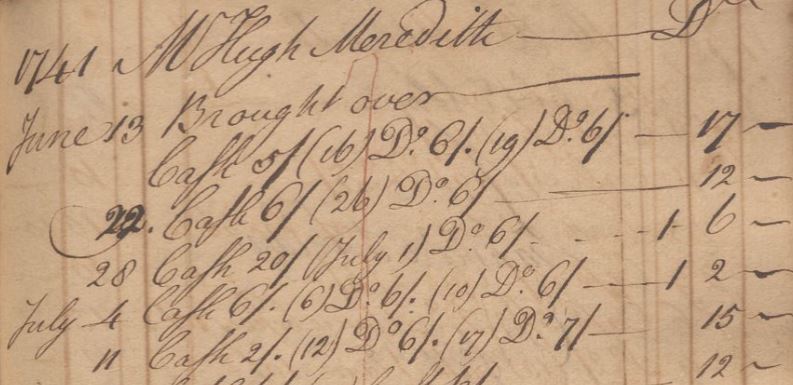 1741 Mr Hugh Meredith — Dr
June 13 Brought over —
Cash 5/ (16) Do. 6/. (19) Do. 6/ — 17 —
22. Cash 6/ (26) Do. 6/ — 12 —
28 Cash 20/ (July 1) Do. 6/ - - - 1 6 —
July 4 Cash 6/. (6) Do. 6/. (10) Do. 6/ — 1 2 —
11 Cash 2/. (12) Do. 6/. (17) Do. 7/ — 15 —
12 —